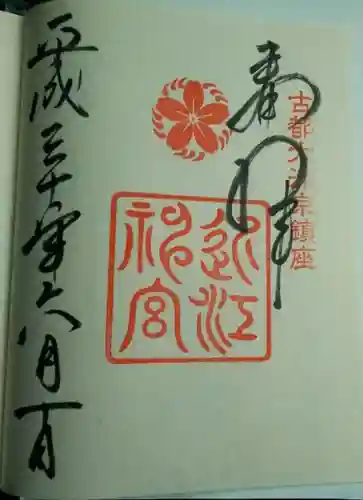 古都大津京鎮座
奉拝
近江
神宮
平成三十年六月一日